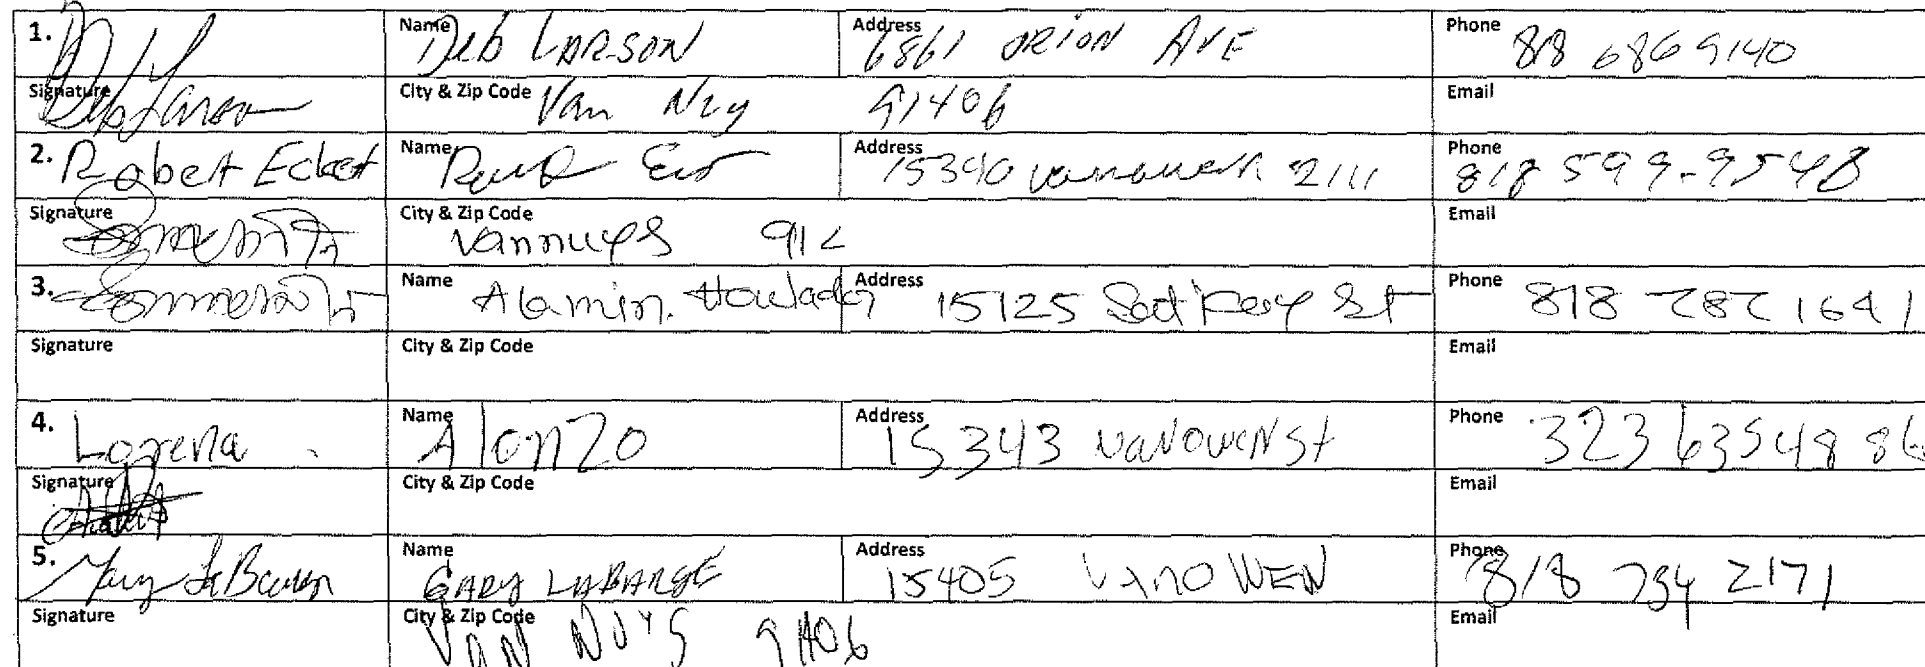 1. Name Deb LARSON Address 6861 ORION AVE Phone 818 686 9140
Signature Deb Larson City & Zip Code Van Nuy 91406 Email
2. Robert Ecket Name Address 15390 2111 Phone 818 599-9548
Signature City & Zip Code Vannuys 912 Email
3. Name Alamin. Howlader Address 15125 St Phone 818 282 1641
Signature City & Zip Code Email
4. Lorena Name Alonzo Address 15343 VaNOweN St Phone 323 6354886
Signature City & Zip Code Email
5. Name GARY LABARGE Address 15405 VANOWEN Phone 818 734 2171
Signature City & Zip Code VAN NUYS 91406 Email